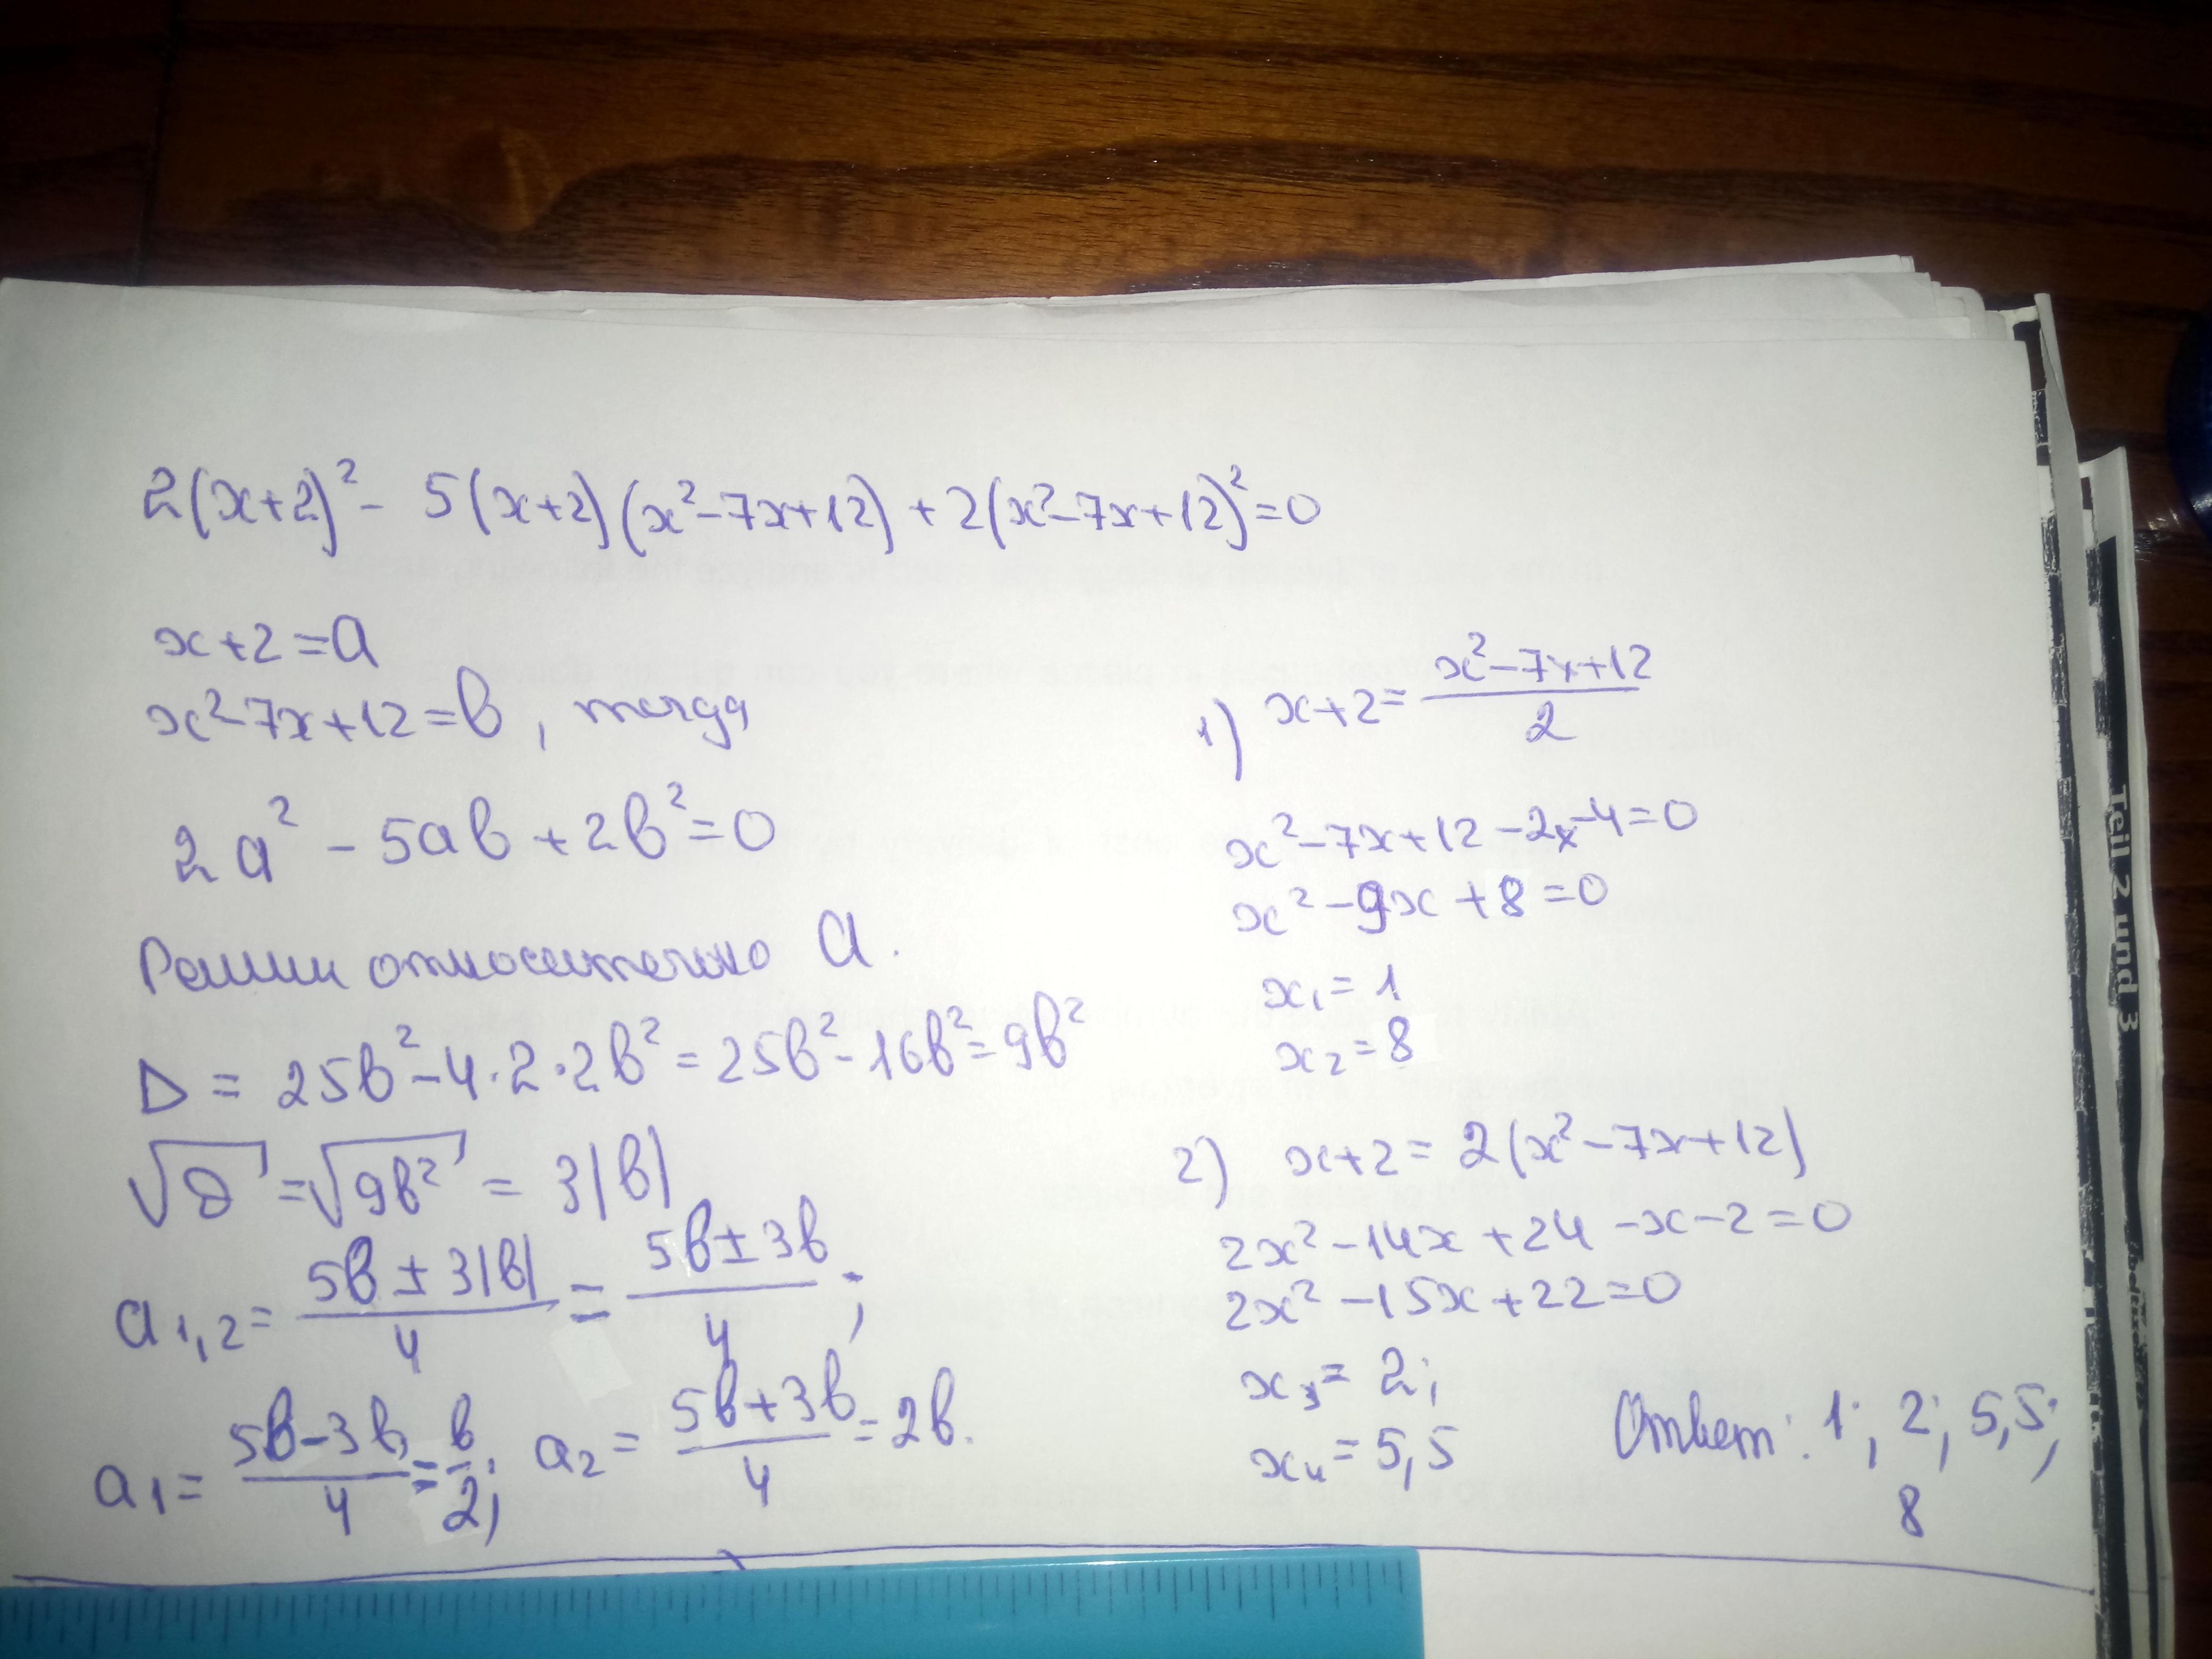 2(x+2)² - 5(x+2)(x²-7x+12) + 2(x²-7x+12)² = 0
x+2 = a
x²-7x+12 = b, тогда
2a² - 5ab + 2b² = 0
Решим относительно a.
D = 25b² - 4·2·2b² = 25b² - 16b² = 9b²
√D = √9b² = 3|b|
a1,2 = (5b ± 3|b|)/4 = (5b ± 3b)/4;
a1 = (5b-3b)/4 = b/2; a2 = (5b+3b)/4 = 2b.
1) x+2 = (x²-7x+12)/2
x²-7x+12-2x-4=0
x²-9x+8=0
x1 = 1
x2 = 8
2) x+2 = 2(x²-7x+12)
2x²-14x+24-x-2=0
2x²-15x+22=0
x3 = 2;
x4 = 5,5
Ответ: 1; 2; 5,5;
8
Teil 2 und 3